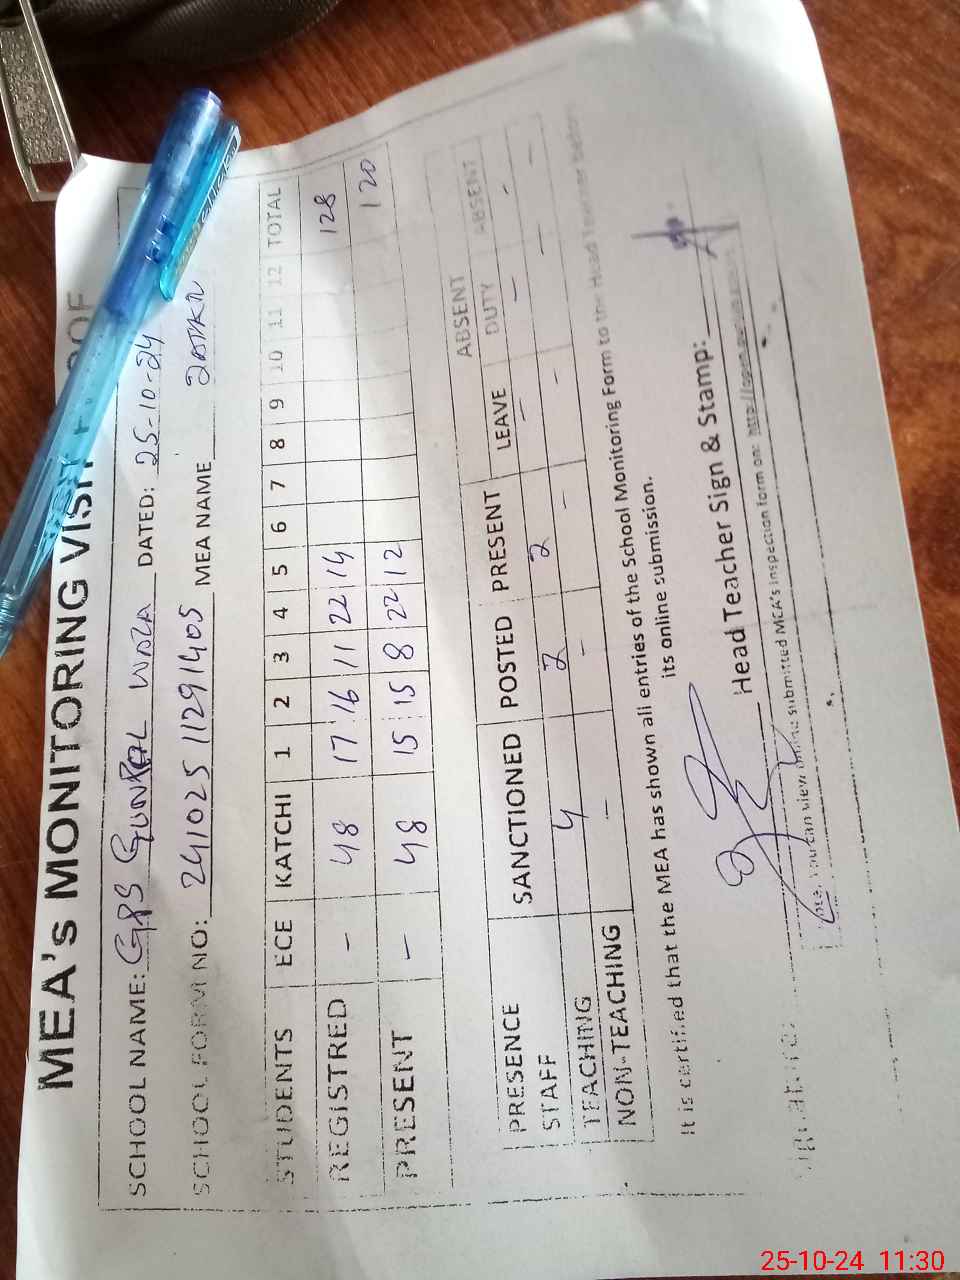 MEA's MONITORING VISIT
SCHOOL NAME: GPS DATED: 25-10-24
SCHOOL FORM NO: 241025 11291405 MEA NAME
STUDENTS ECE KATCHI 1 2 3 4 5 6 7 8 9 10 11 12 TOTAL
REGISTRED - 48 17 16 11 22 14 128
PRESENT - 48 15 15 8 22 12 120
PRESENCE SANCTIONED POSTED PRESENT LEAVE ABSENT DUTY ABSENT
STAFF
TEACHING 4 2 2 - - -
NON-TEACHING - - - - - -
It is certified that the MEA has shown all entries of the School Monitoring Form to the Head Teacher before
its online submission.
Head Teacher Sign & Stamp:
You can view online submitted MEA's inspection form on:
25-10-24 11:30